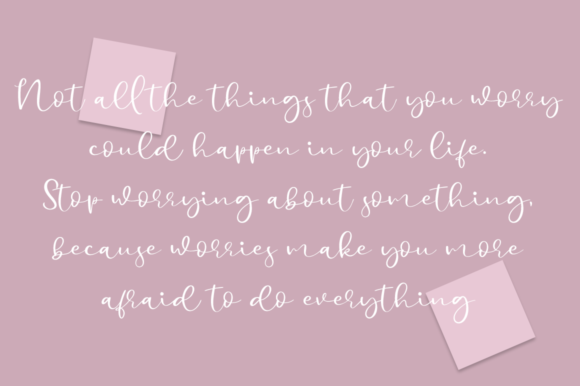 Not all the things that you worry
could happen in your life.
Stop worrying about something,
because worries make you more
afraid to do everything